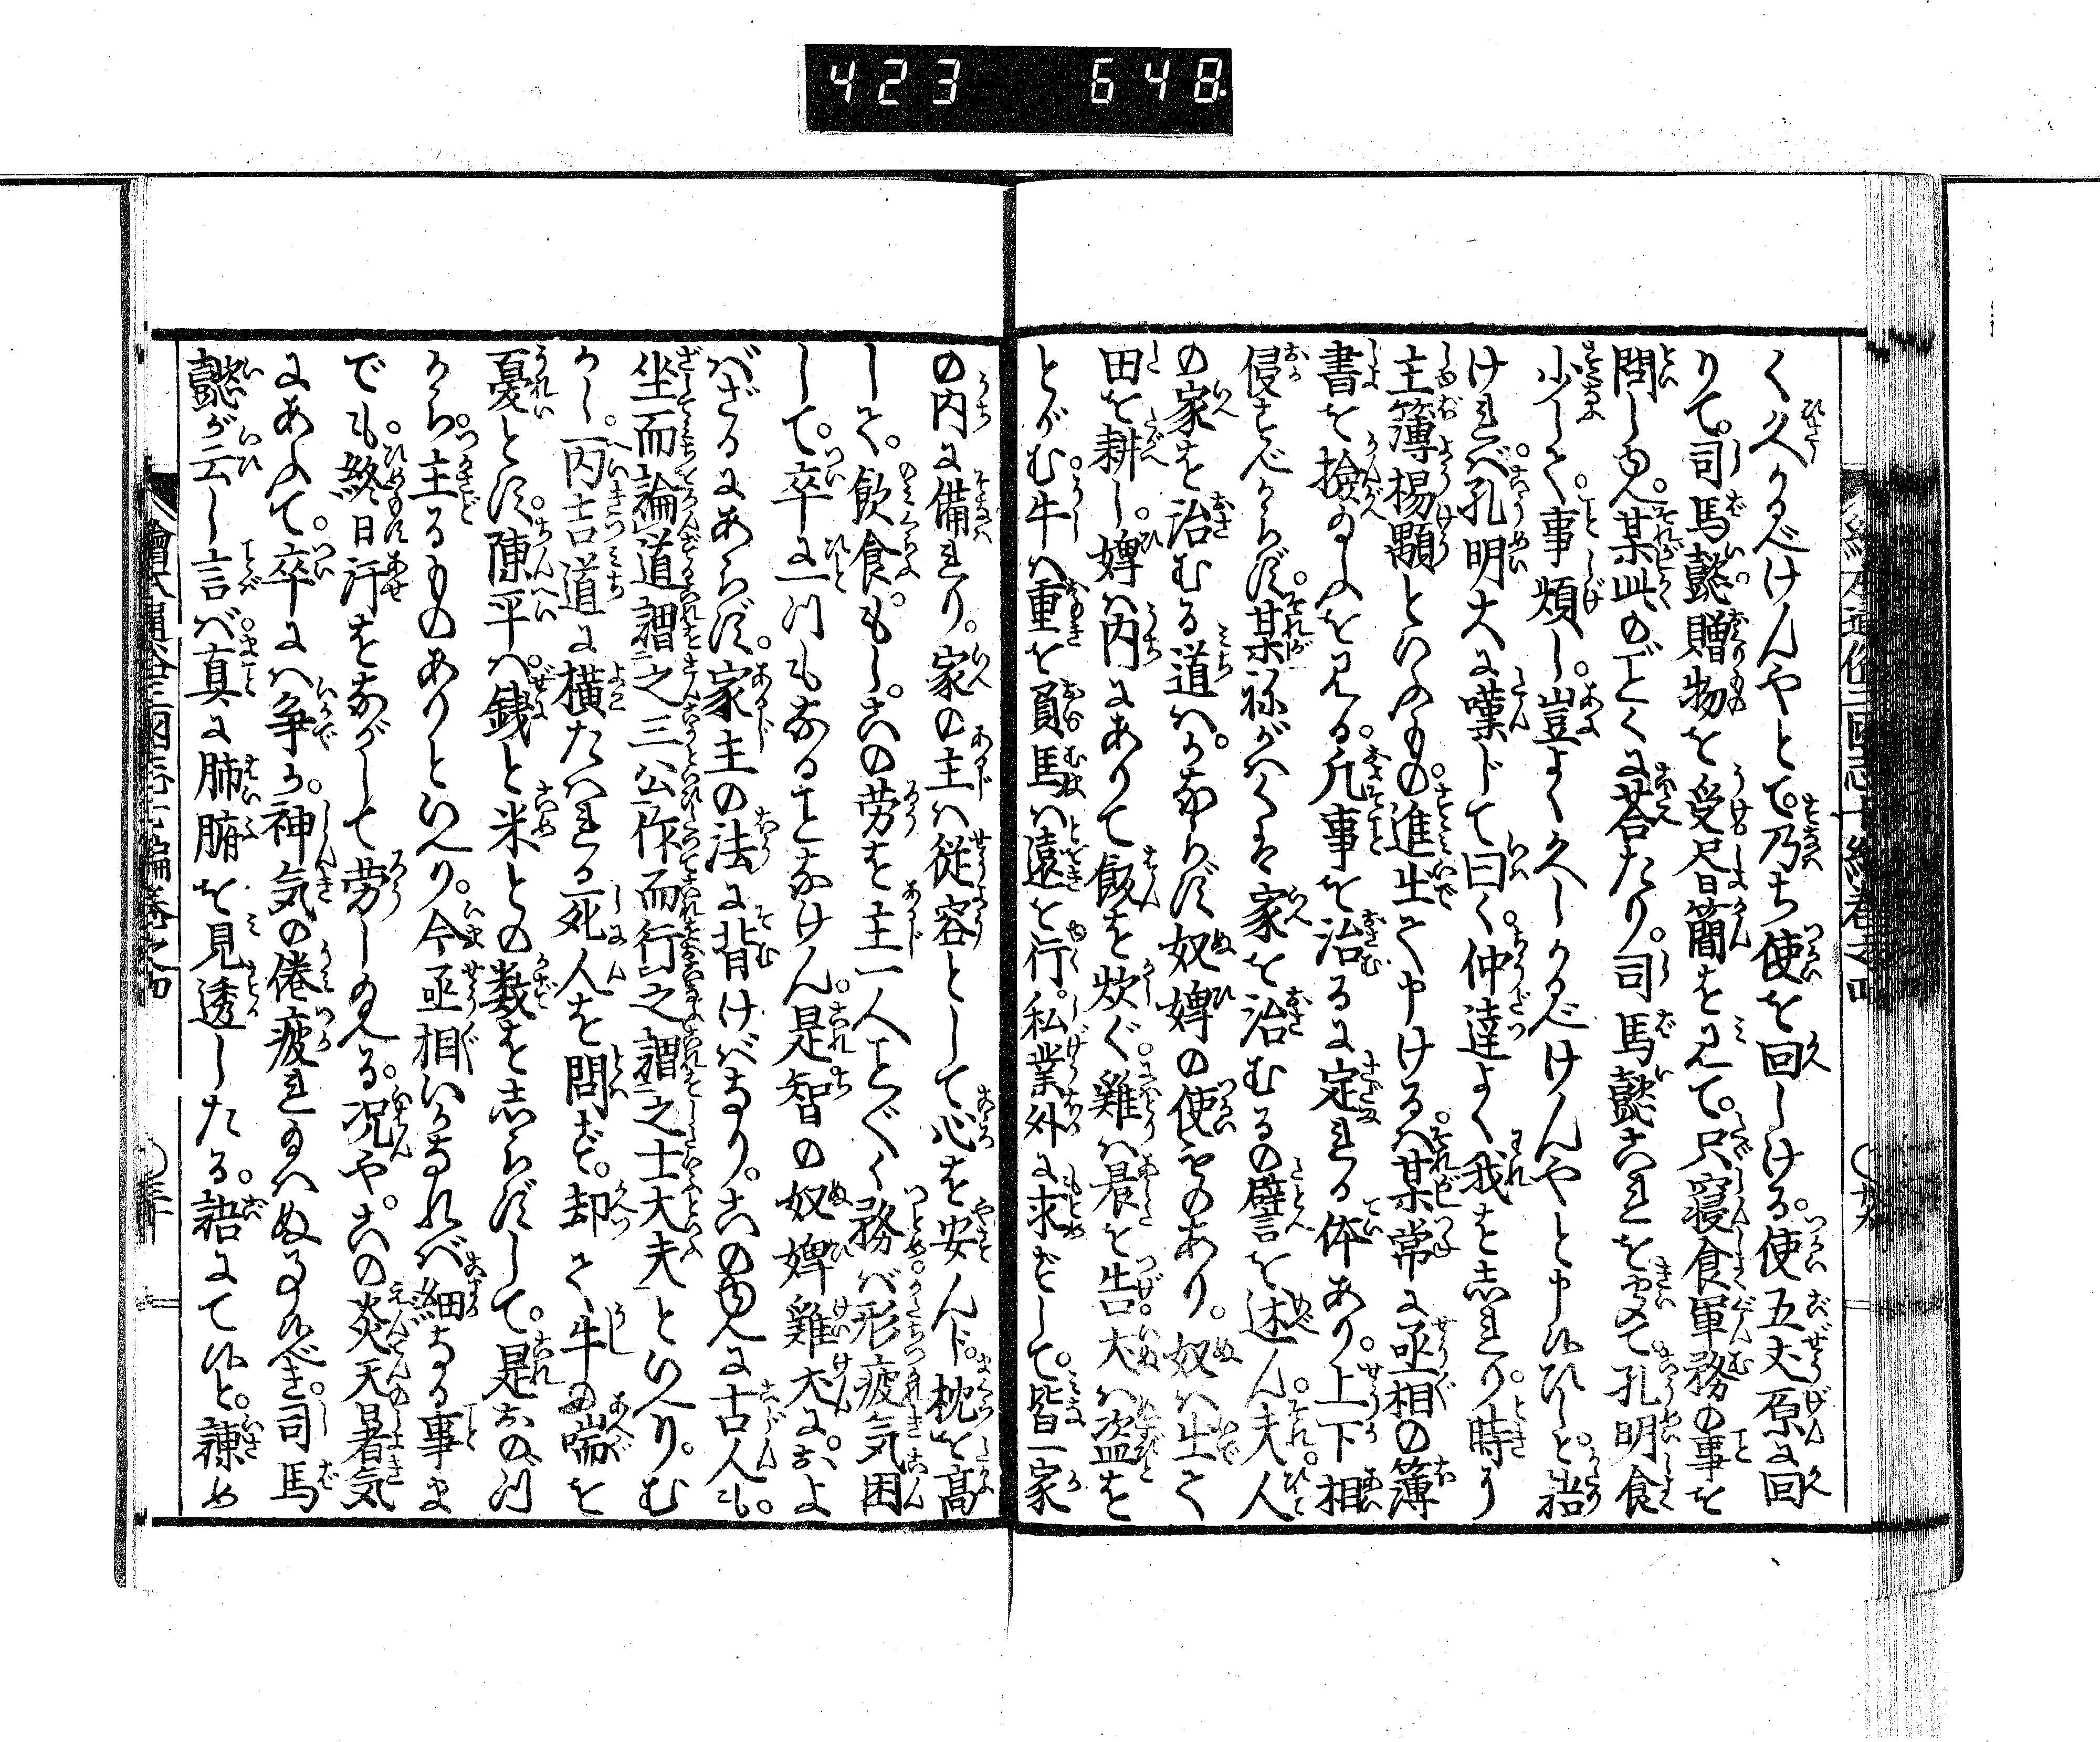 423 648
く久かるべけんやとて。乃ち使を回しける。使五丈原に回
りて。司馬懿贈物を受昼簡を見て。只寝食軍務の事を
問しゆへ。某此のごとくに荅たり。司馬懿これを聞て。孔明食
少しく。事煩し。豈よく久しかるべけんやと申候ひしと語
ければ。孔明大に嘆じて曰く。仲達よく我を志れり。時に
主簿楊顒といふもの。進出て申けるハ。某常に丞相の簿
書を撿め玉ふを見る。凡事を治るに定れる体あり。上下相
侵すべからず。某祢がハくは家を治むるの譬言を述ん。夫人
の家を治むる道ハ。かならず奴婢の使ものあり。奴ハ出て
田を耕し。婢ハ内にありて飯を炊ぐ。雞ハ晨を告。犬ハ盗を
とがむ。牛ハ重を負。馬ハ遠を行。私業外に求ずして。皆一家
の内に備れり。家の主ハ従容として心を安んじ。枕を高
して。飲食。もし。此の労を主一人ことごとく務バ。形疲気困
して。卒に一つも奈ることなけん。是智の奴婢雞犬に。およ
バざるにあらず。家主の法に背けバなり。このゆへに古人も。
坐而論道謂之三公作而行之謂之士大夫といへり。む
かし。丙吉道に横たハれる死人を問ず。却て牛の喘を
憂とす。陳平ハ銭と米との数を志らずして。是おのづ
から。主るものありといへり。今丞相いかなれバ細なる事ま
でも。終日汗をながして労し玉へる。況や。この炎天暑気
にあふて。卒にハ争か。神気の倦疲れ玉ハぬ事候べき。司馬
懿が云し言バ。真に肺腑を見透したる。語にて候と。諌め